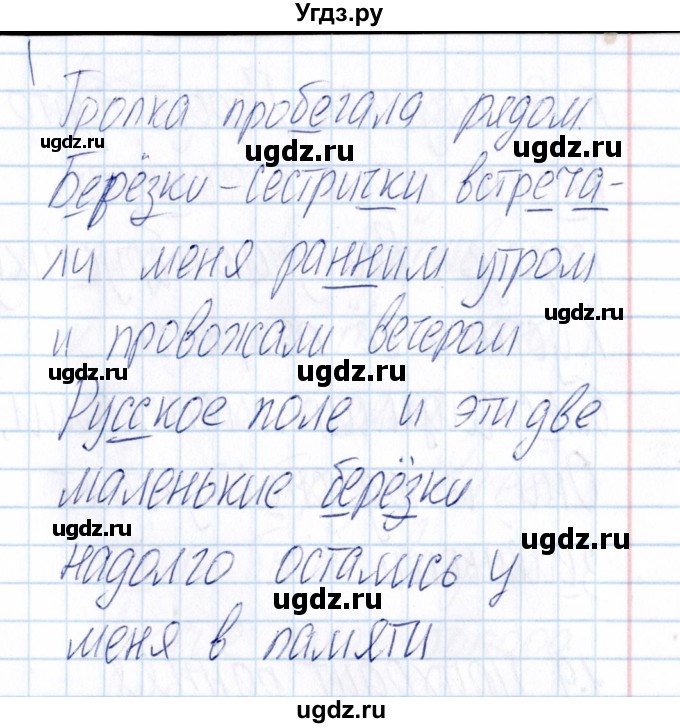 Угдз.ру
Тропка пробегала рядом.
ugdz.ru ugdz.ru ugdz.ru
Берёзки-сестрички встреча-
ли меня ранним утром
ugdz.ru
и провожали вечером
ugdz.ru ugdz.ru
Русское поле и эти две
маленькие берёзки
ugdz.ru ugdz.ru
надолго остались у
ugdz.ru ugdz.ru
меня в памяти
ugdz.ru